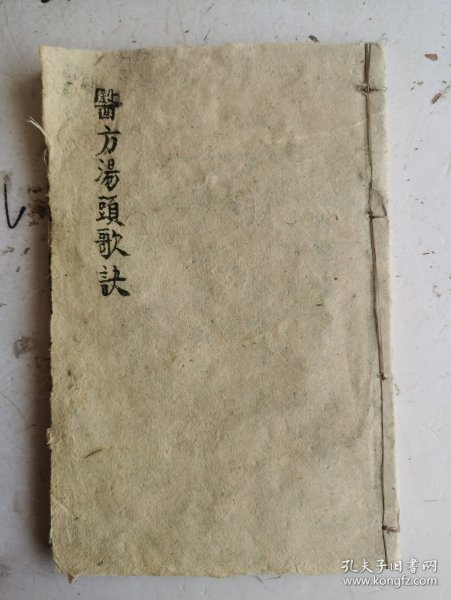 醫方湯頭歌訣
孔夫子旧书网
www.kongfz.com